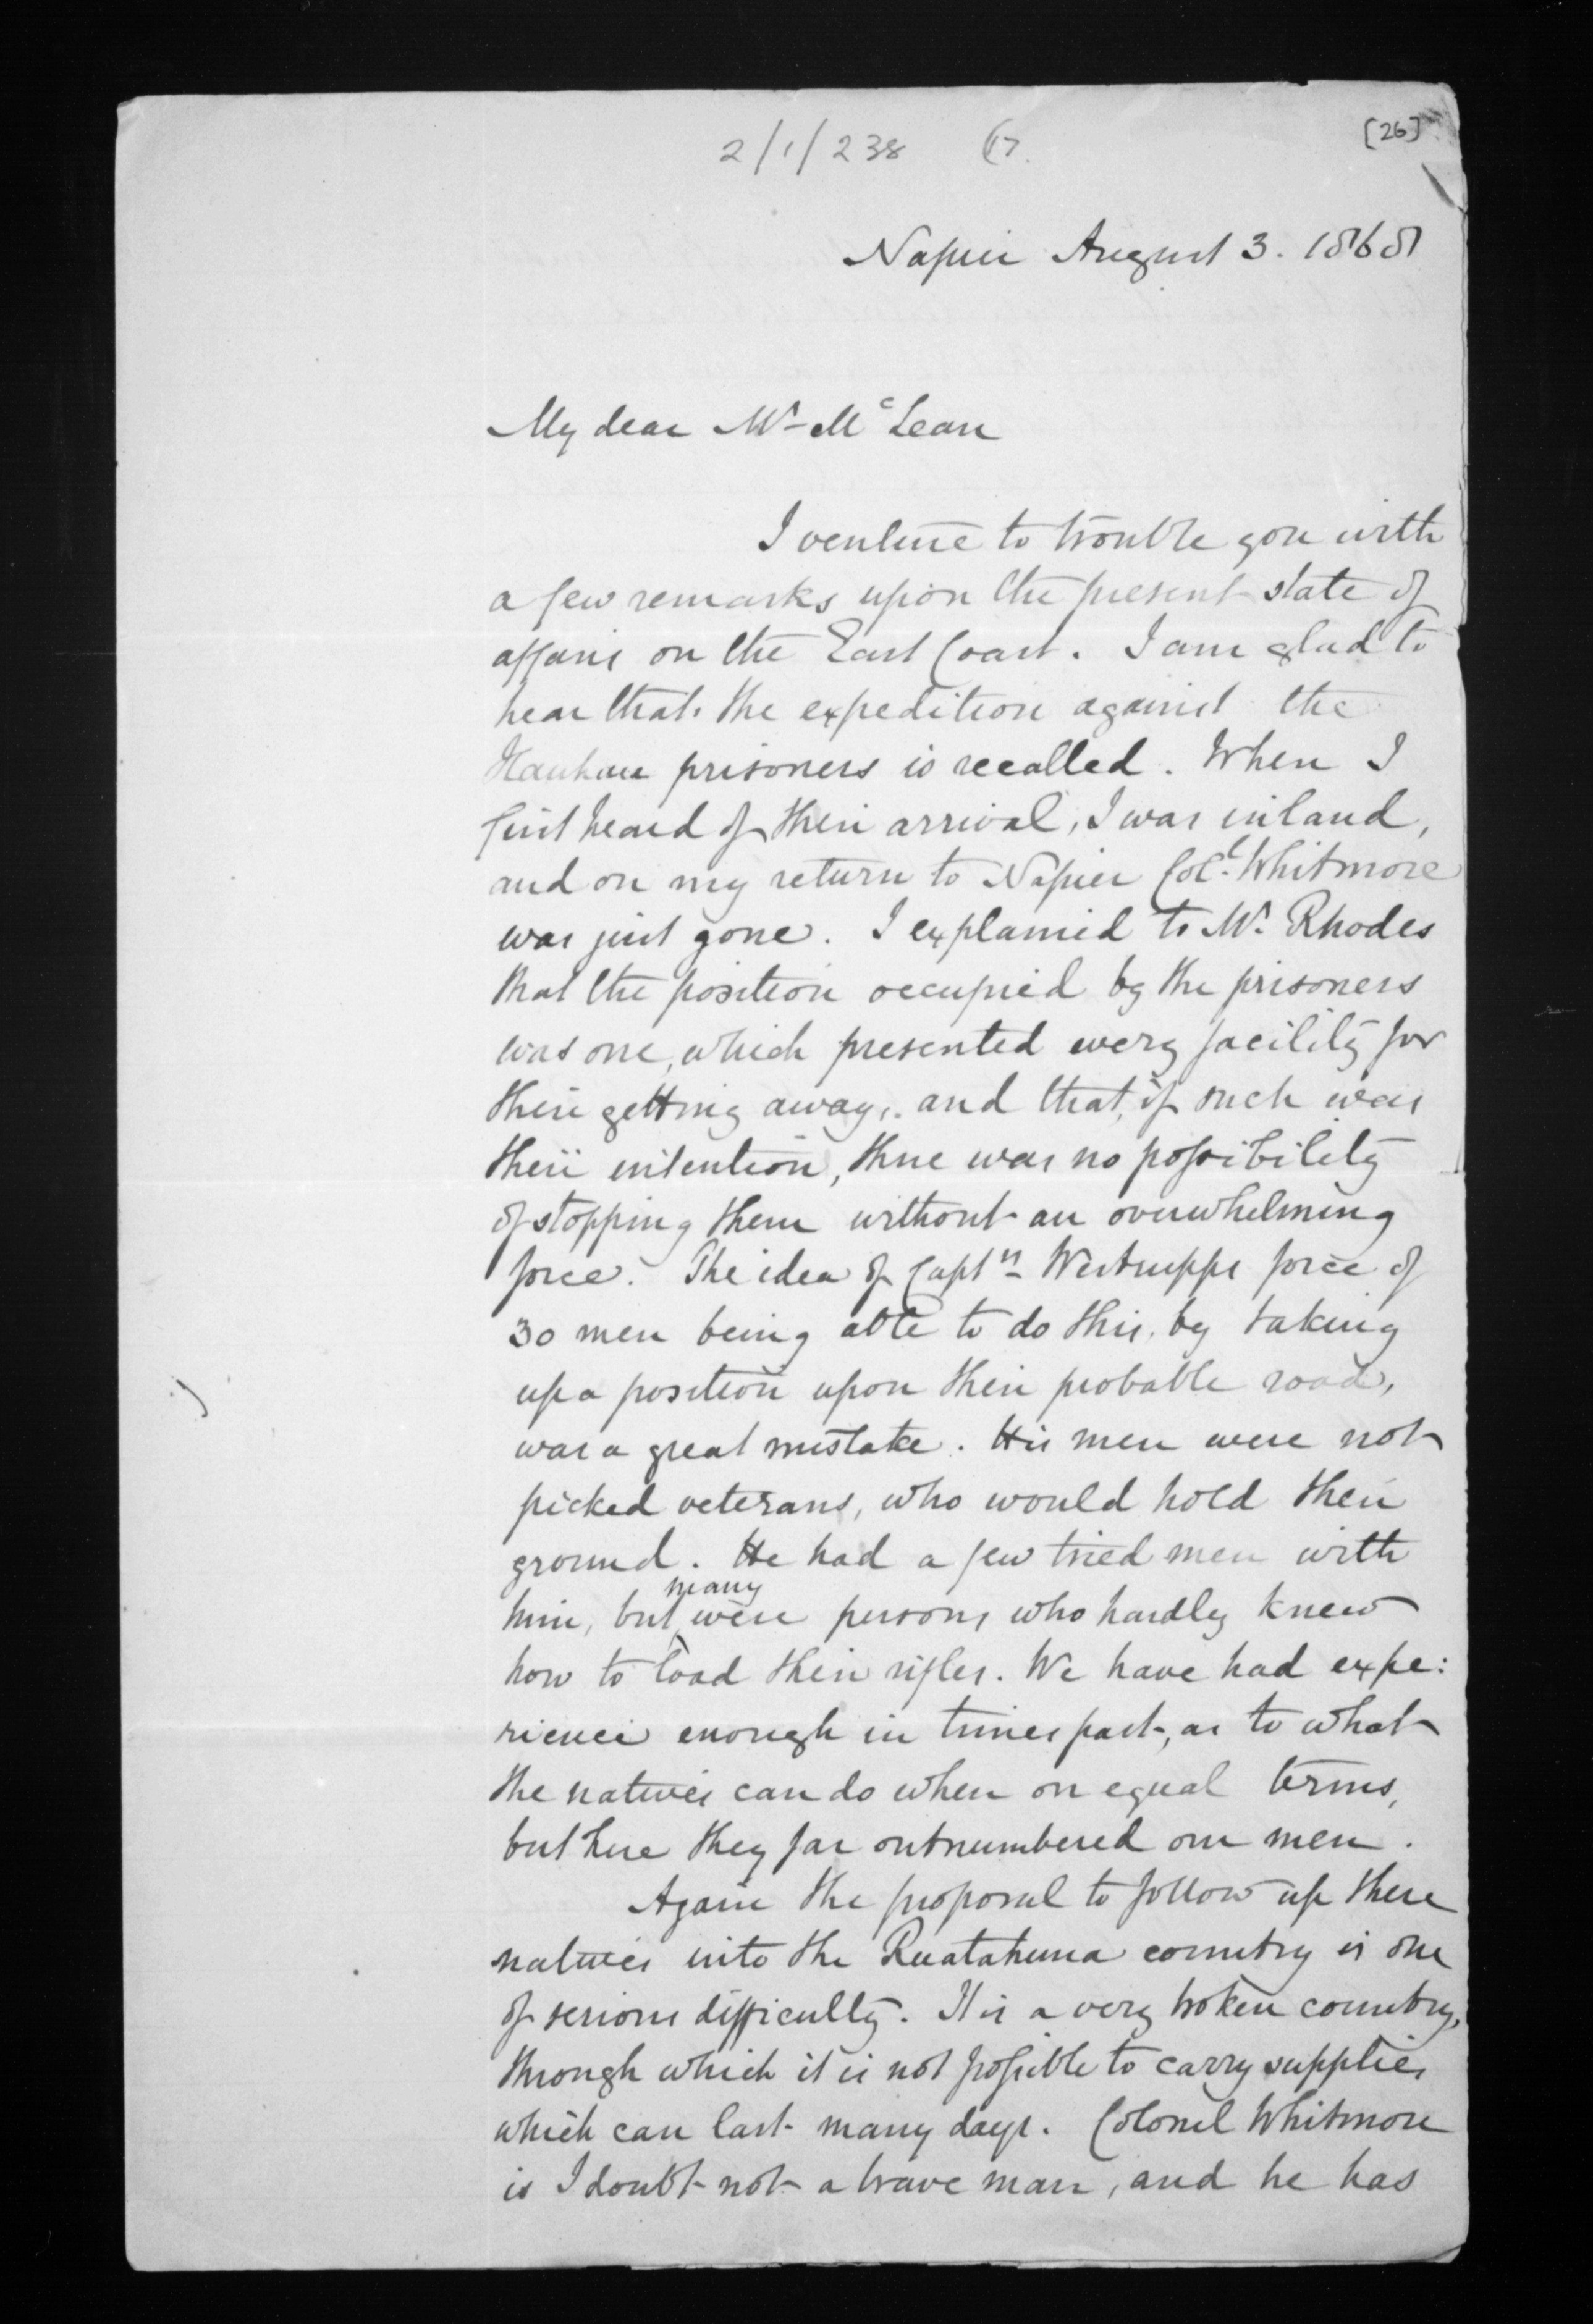 2/1/238 (17.
[26]
Napier August 3. 1868
My dear Mr McLean
I venture to trouble you with
a few remarks upon the present state of
affairs on the East Coast. I am glad to
hear that the expedition against the
Hauhau prisoners is recalled. When I
first heard of their arrival, I was inland,
and on my return to Napier Col. Whitmore
was just gone. I explained to Mr. Rhodes
that the position occupied by the prisoners
was one, which presented every facility for
their getting away, and that, if such was
their intention, there was no possibility
of stopping them without an overwhelming
force. The idea of Captn Westrupps force of
30 men being able to do this, by taking
up a position upon their probable road,
was a great mistake. His men were not
picked veterans, who would hold their
ground. He had a few tried men with
him, but many were persons who hardly knew
how to load their rifles. We have had expe:
rience enough in times past, as to what
the natives can do when on equal terms,
but here they far outnumbered our men.
Again the proposal to follow up these
natives into the Ruatahuna country is one
of serious difficulty. It is a very broken country,
through which it is not possible to carry supplies
which can last many days. Colonel Whitmore
is I doubt not a brave man, and he has